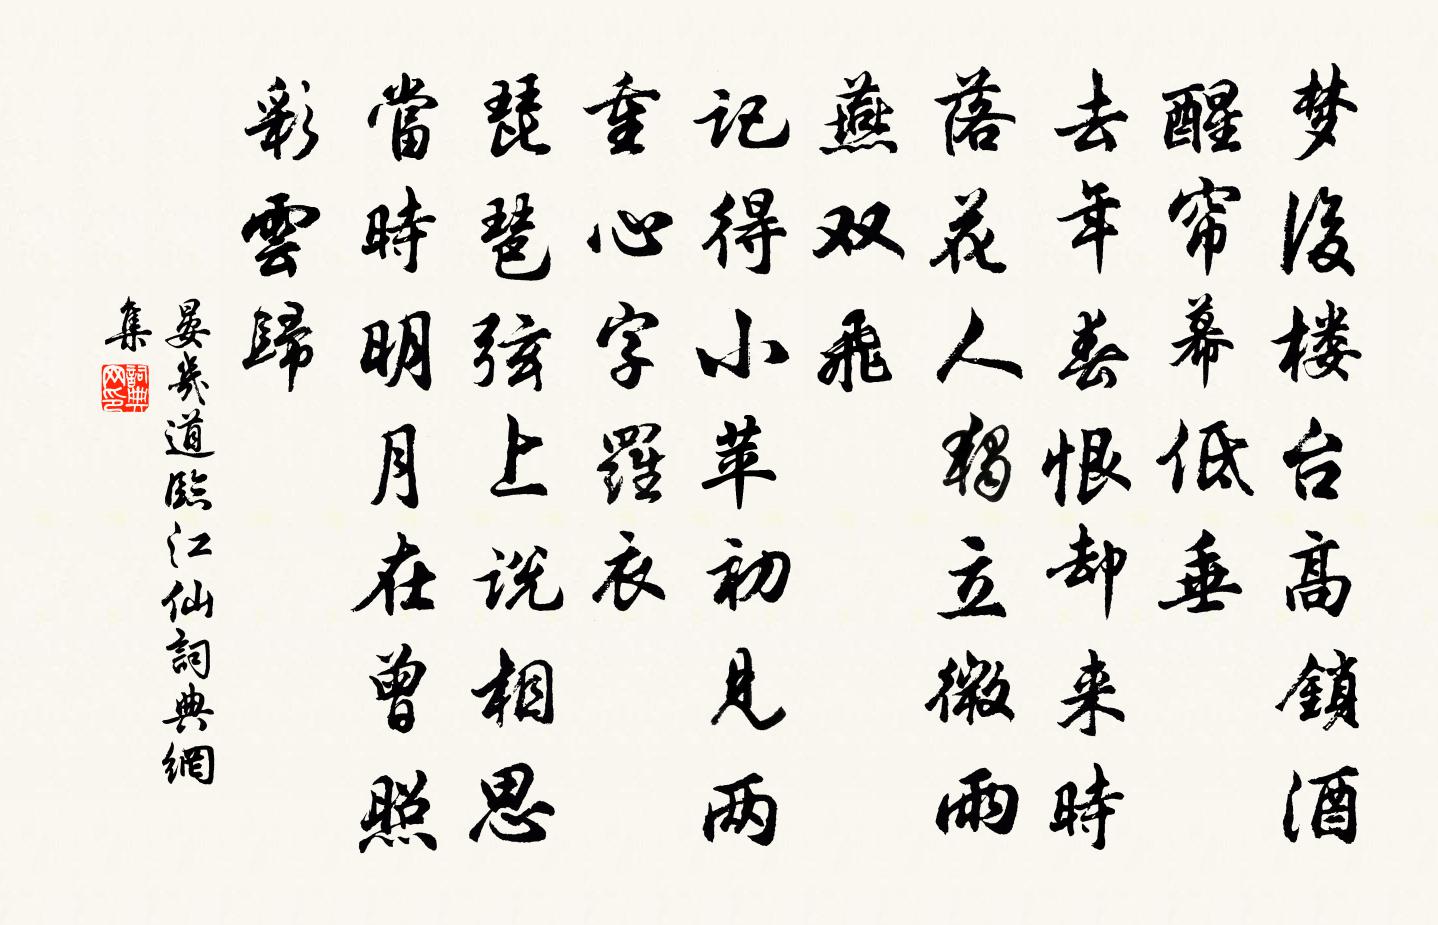 梦後楼台高鎖酒
醒帘幕低垂
去年春恨却来時
落花人独立微雨
燕双飛
記得小苹初見两
重心字羅衣
琵琶弦上说相思
當時明月在曾照
彩雲歸
晏幾道臨江仙詞典網
集
詞典网印